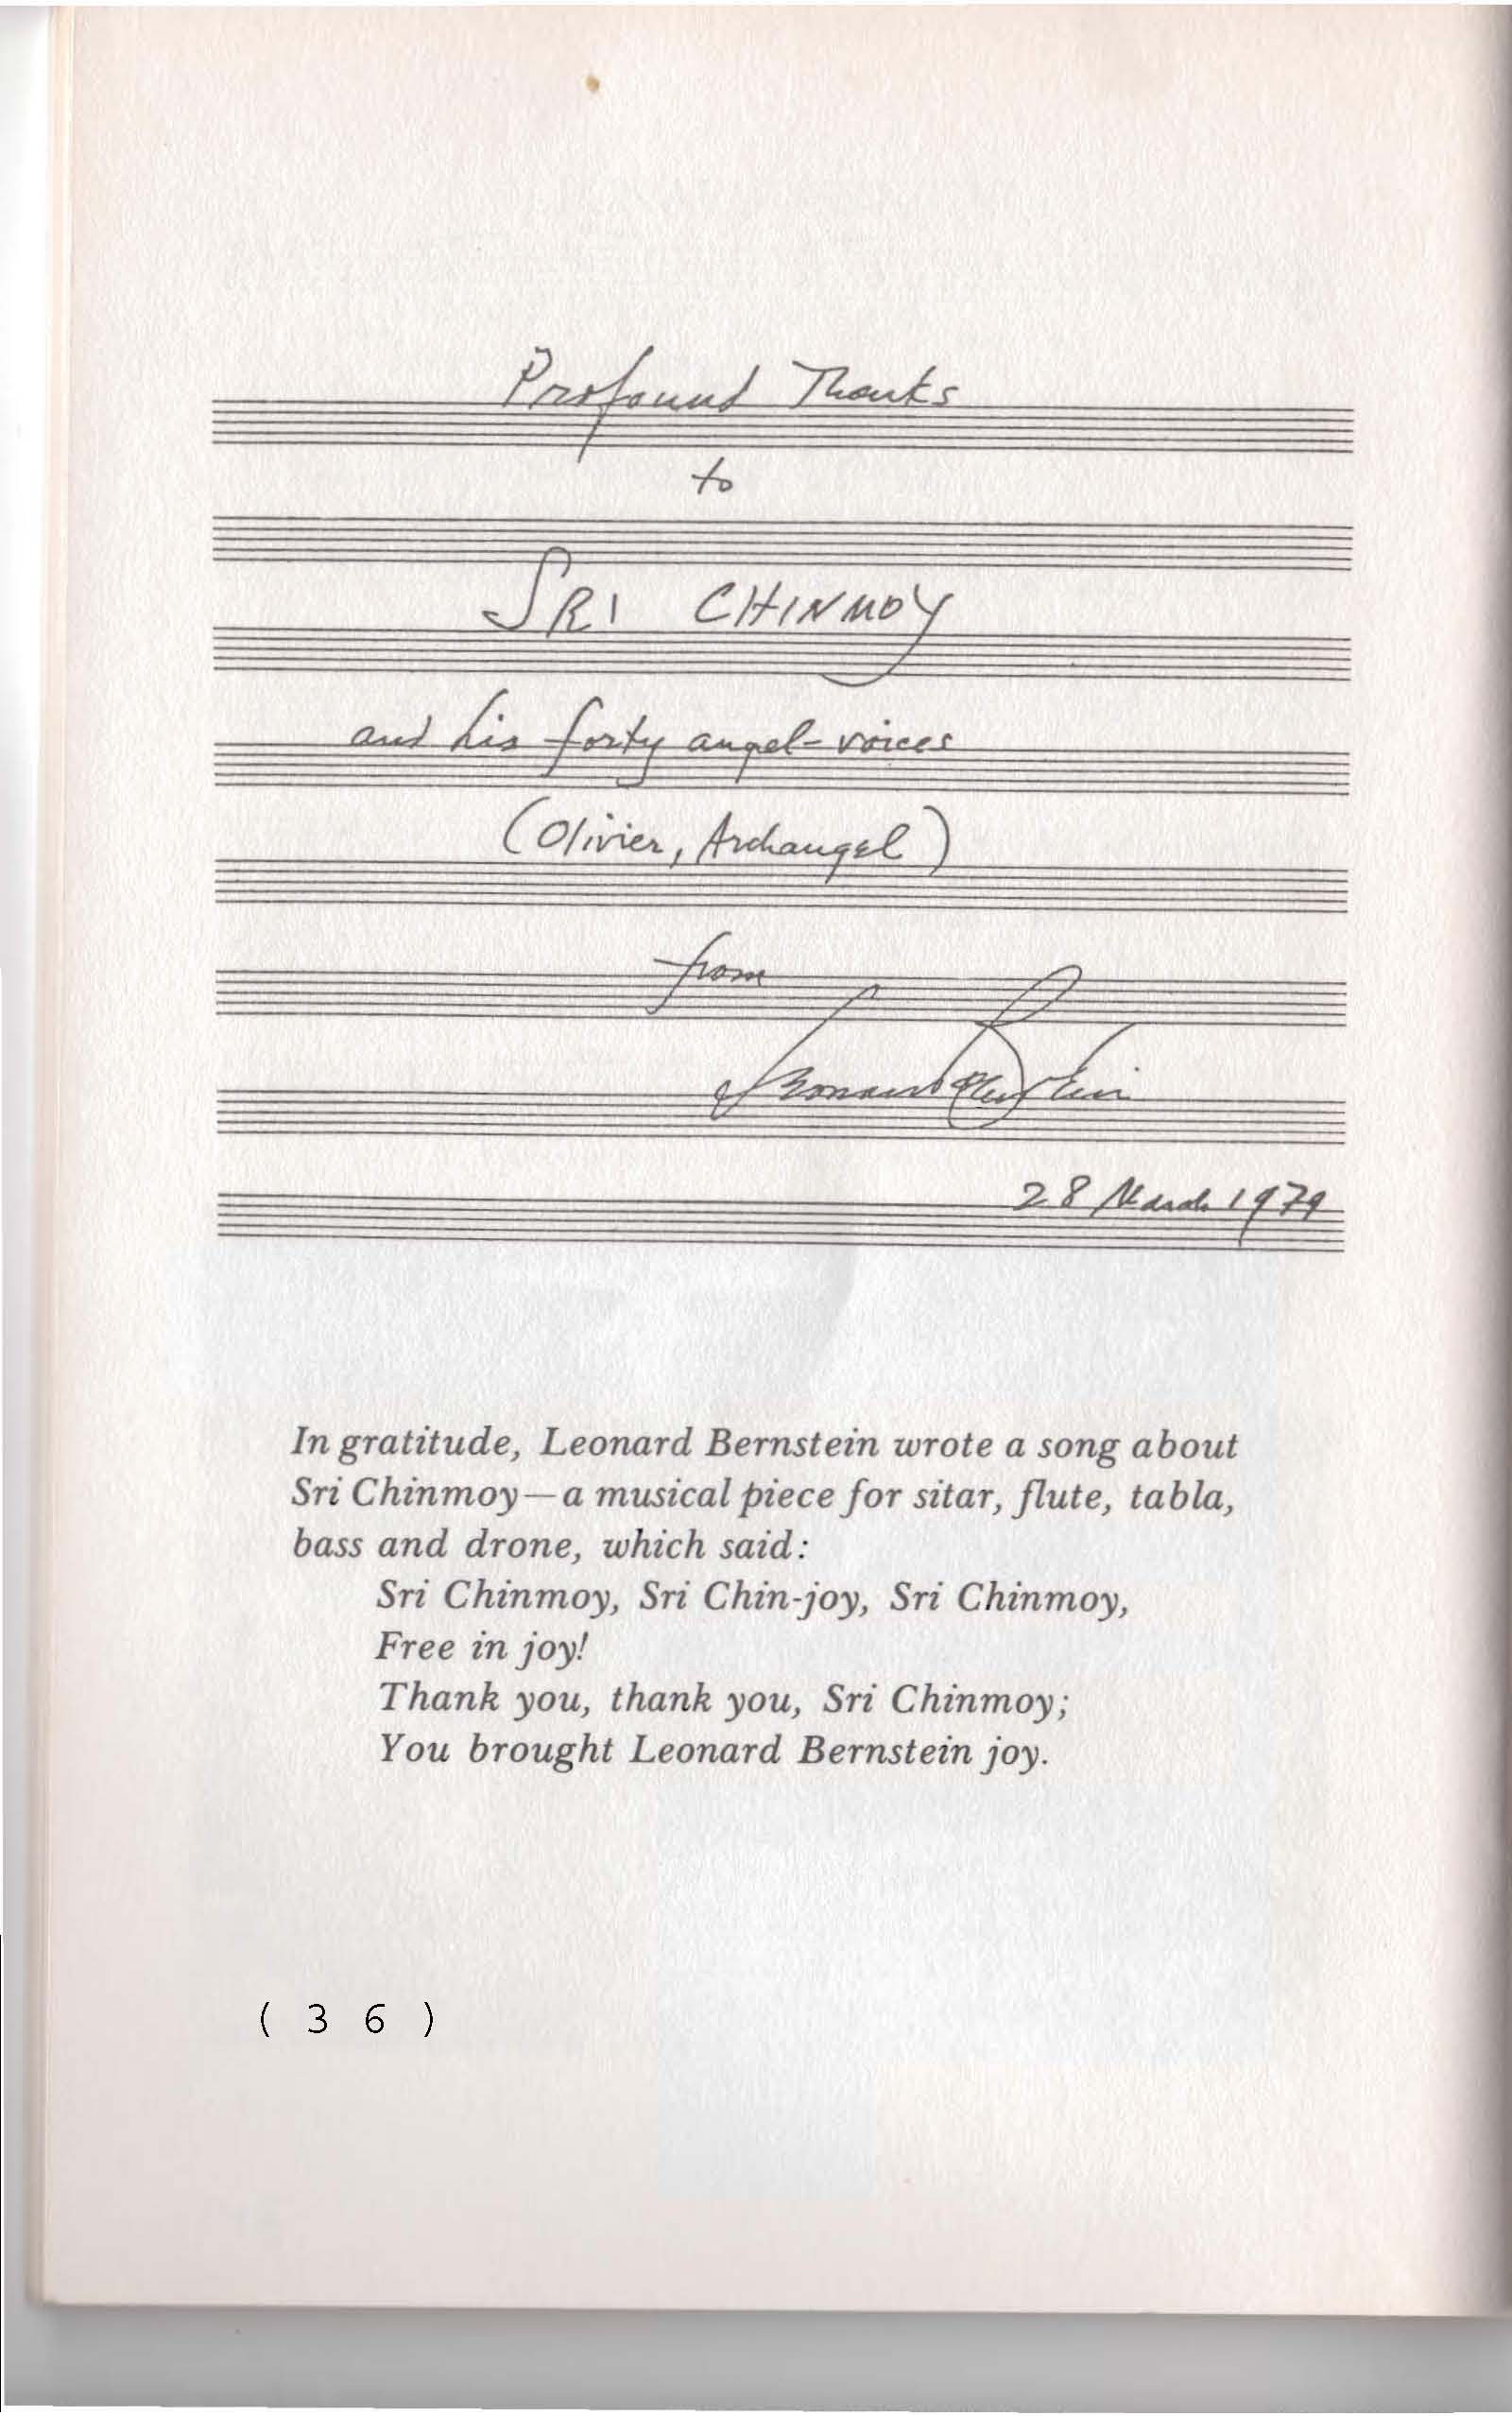 Profound Thanks
to
SRI CHINMOY
and his forty angel-voices
(Olivier, Archangel)
from
Leonard Bernstein
28 March 1979
In gratitude, Leonard Bernstein wrote a song about
Sri Chinmoy—a musical piece for sitar, flute, tabla,
bass and drone, which said:
Sri Chinmoy, Sri Chin-joy, Sri Chinmoy,
Free in joy!
Thank you, thank you, Sri Chinmoy;
You brought Leonard Bernstein joy.
( 3 6 )